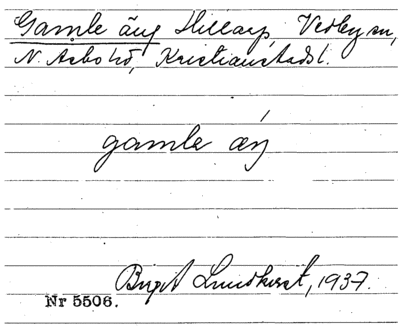 Gamle äng Hillarp, Vedby sn,
N. Åsbo hd, Kristianstads l.
gamle æŋ
Birgit Lundkvist, 1937.
Nr 5506.